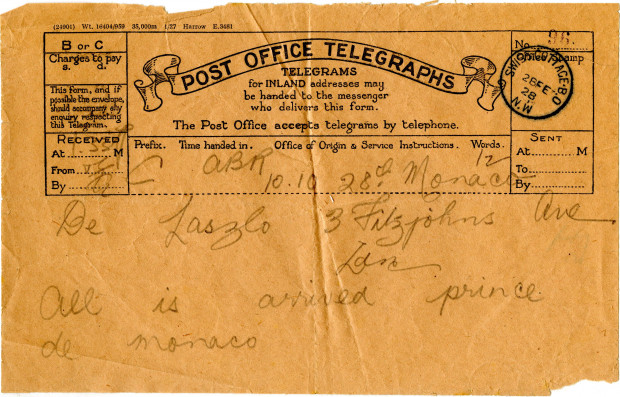 (24901) Wt. 16404/959 35,000m 1/27 Harrow E.3481
B or C
Charges to pay
s. d.
POST OFFICE TELEGRAPHS
No. 98
Office Stamp
SWISS COTTAGE B.O
28 FE
28
N.W
This Form, and if
possible the envelope,
should accompany any
enquiry respecting
this Telegram.
TELEGRAMS
for INLAND addresses may
be handed to the messenger
who delivers this form.
The Post Office accepts telegrams by telephone.
RECEIVED
At M
From
By
Prefix. Time handed in. Office of Origin & Service Instructions. Words.
SENT
At M
To
By
ABR 12
10.10 28th Monaco
De Laszlo 3 Fitzjohns Ave
Ldn
All is arrived prince
de monaco